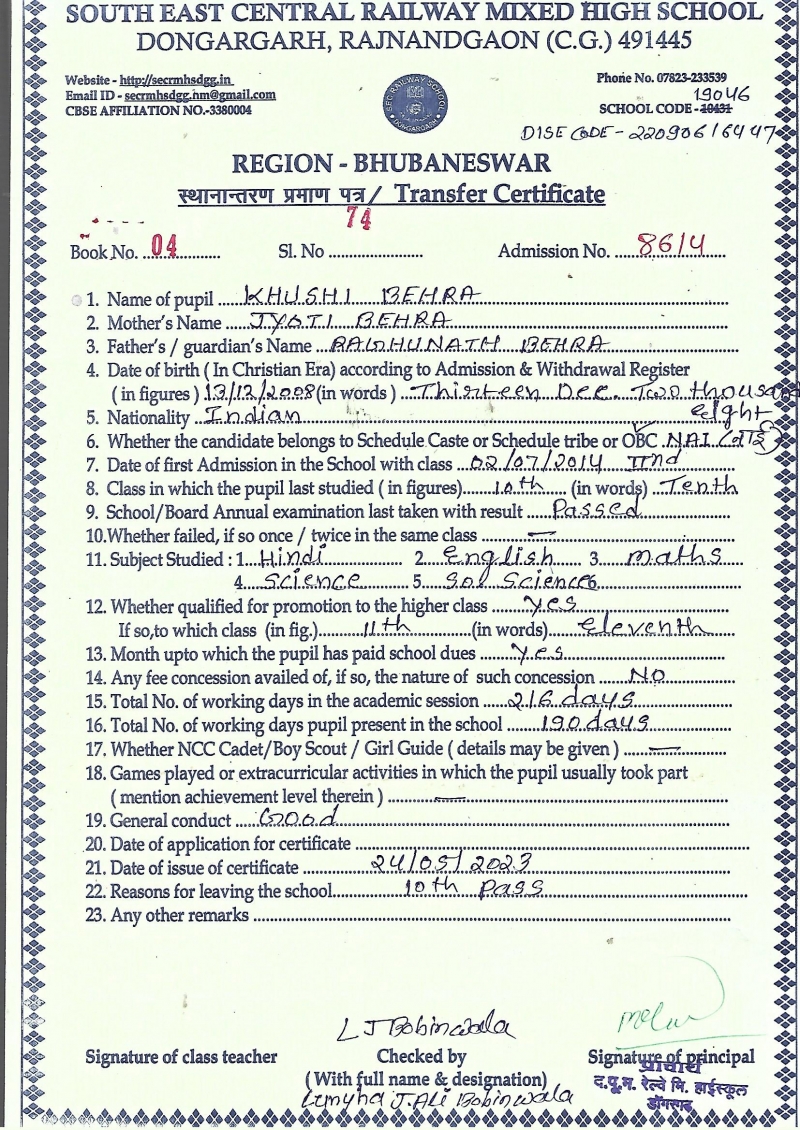 SOUTH EAST CENTRAL RAILWAY MIXED HIGH SCHOOL
DONGARGARH, RAJNANDGAON (C.G.) 491445
Website - http://secrmhsdgg.in
Phone No. 07823-233539
Email ID - secrmhsdgg.hm@gmail.com
19046
CBSE AFFILIATION NO.-3380004
SCHOOL CODE -10431
SEC RAILWAY SCHOOL
DONGARGARH
DISE CODE - 22090616447
REGION - BHUBANESWAR
स्थानान्तरण प्रमाण पत्र / Transfer Certificate
Book No. 04 Sl. No 74 Admission No. 8614
1. Name of pupil KHUSHI BEHRA
2. Mother's Name JYOTI BEHRA
3. Father's / guardian's Name RAGHUNATH BEHRA
4. Date of birth ( In Christian Era) according to Admission & Withdrawal Register
( in figures ) 13/12/2008 (in words ) Thirteen Dec. Two thousand
eight
5. Nationality Indian
6. Whether the candidate belongs to Schedule Caste or Schedule tribe or OBC NAI
7. Date of first Admission in the School with class 02/07/2014 IInd
8. Class in which the pupil last studied ( in figures) 10th (in words) Tenth
9. School/Board Annual examination last taken with result Passed
10.Whether failed, if so once / twice in the same class —
11. Subject Studied : 1. Hindi 2. English 3. maths
4. Science 5. Sol Science 6.
12. Whether qualified for promotion to the higher class yes
If so,to which class (in fig.) 11th (in words) eleventh
13. Month upto which the pupil has paid school dues yes
14. Any fee concession availed of, if so, the nature of such concession NO
15. Total No. of working days in the academic session 216 days
16. Total No. of working days pupil present in the school 190 days
17. Whether NCC Cadet/Boy Scout / Girl Guide ( details may be given ) —
18. Games played or extracurricular activities in which the pupil usually took part
( mention achievement level therein ) —
19. General conduct Good
20. Date of application for certificate
21. Date of issue of certificate 24/05/2023
22. Reasons for leaving the school 10th Pass
23. Any other remarks
L J Bobinwala
Signature of class teacher
Checked by
Signature of principal
(With full name & designation)
J. Ali Bobinwala
प्राचार्य
द.पू.म. रेल्वे मि. हाईस्कूल
डोंगरगढ़